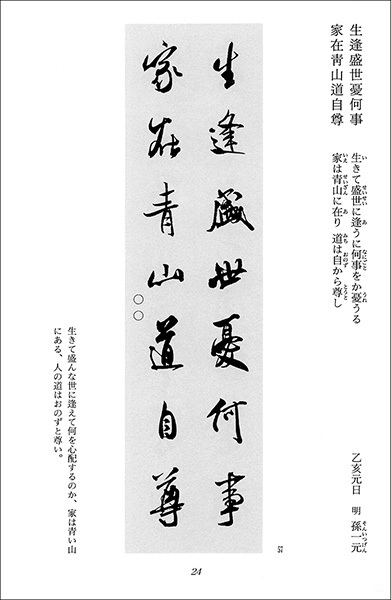 生逢盛世憂何事
家在青山道自尊
生きて盛世に逢うに何事をか憂うる
家は青山に在り 道は自から尊し
乙亥元日 明 孫一元
生逢盛世憂何事
家在青山道自尊
○○
生きて盛んな世に逢えて何を心配するのか、家は青い山
にある、人の道はおのずと尊い。
57
24